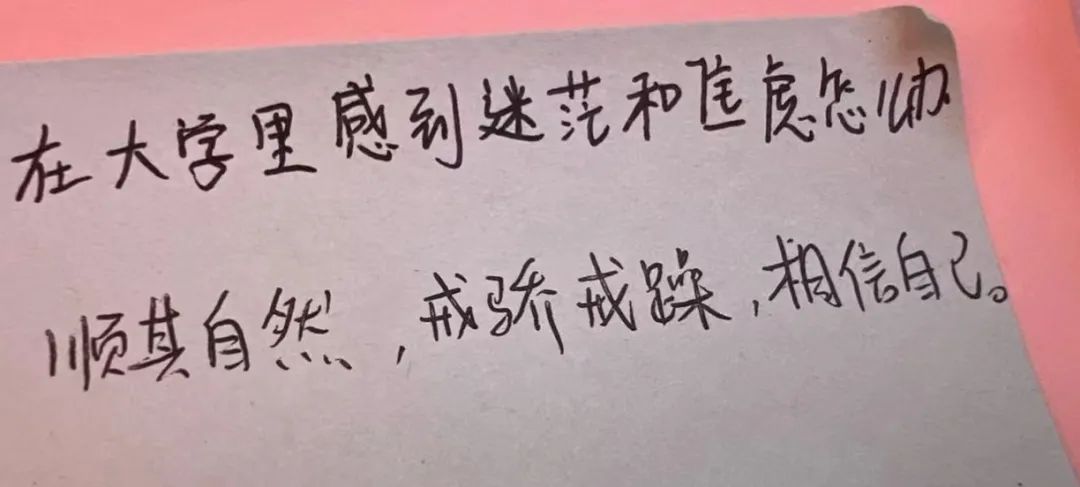 在大学里感到迷茫和焦虑怎么办
顺其自然，戒骄戒躁，相信自己。